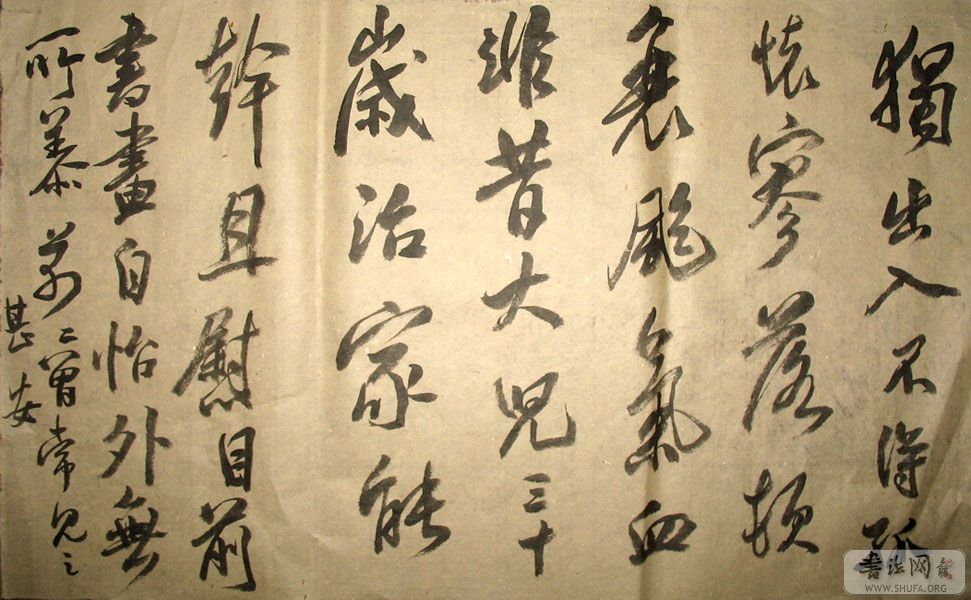 獨出入不得孤
懷寥落頓
衰颯氣血
非昔大兒三十
歲治家能
幹且慰目前
書畫自怡外無
所慕前二曾常見之
甚安
書法网
WWW.SHUFA.ORG